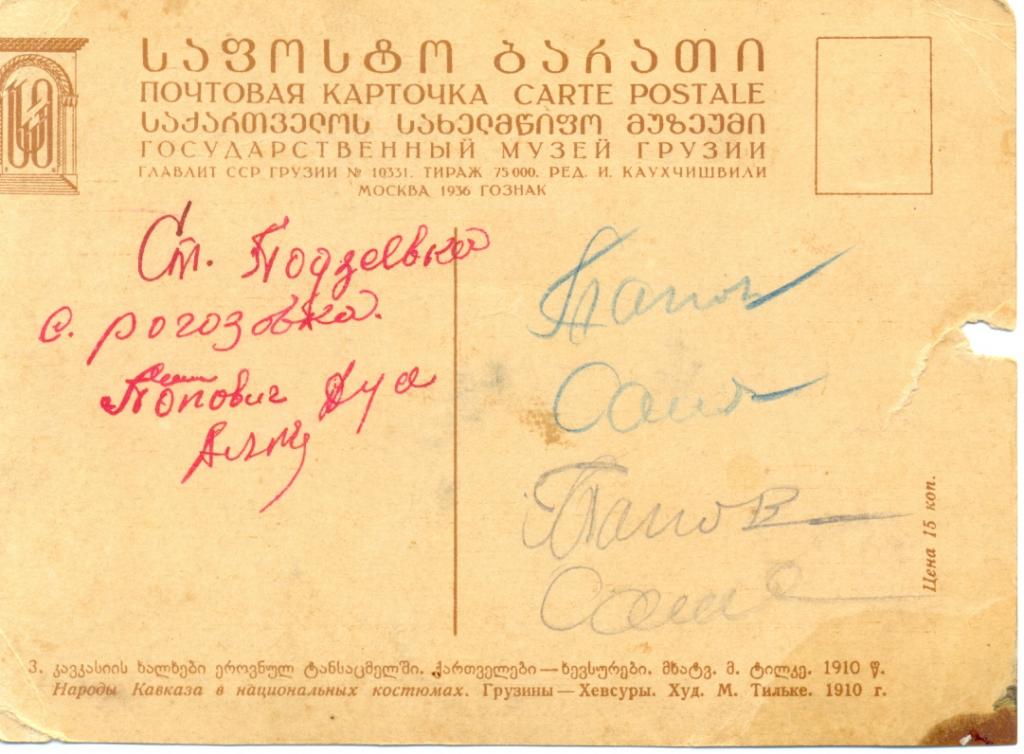 საფოსტო ბარათი
ПОЧТОВАЯ КАРТОЧКА CARTE POSTALE
საქართველოს სახელმწიფო მუზეუმი
ГОСУДАРСТВЕННЫЙ МУЗЕЙ ГРУЗИИ
ГЛАВЛИТ ССР ГРУЗИИ № 10331. ТИРАЖ 75 000. РЕД. И. КАУХЧИШВИЛИ
МОСКВА 1936 ГОЗНАК
Ст.
с. рогозовка.
Попович
Папов
Саша
Папов
Саша
Цена 15 коп.
3. კავკასიის ხალხები ეროვნულ ტანსაცმელში. ქართველები — ხევსურები. მხატვ. მ. ტილკე. 1910 წ.
Народы Кавказа в национальных костюмах. Грузины — Хевсуры. Худ. М. Тильке. 1910 г.